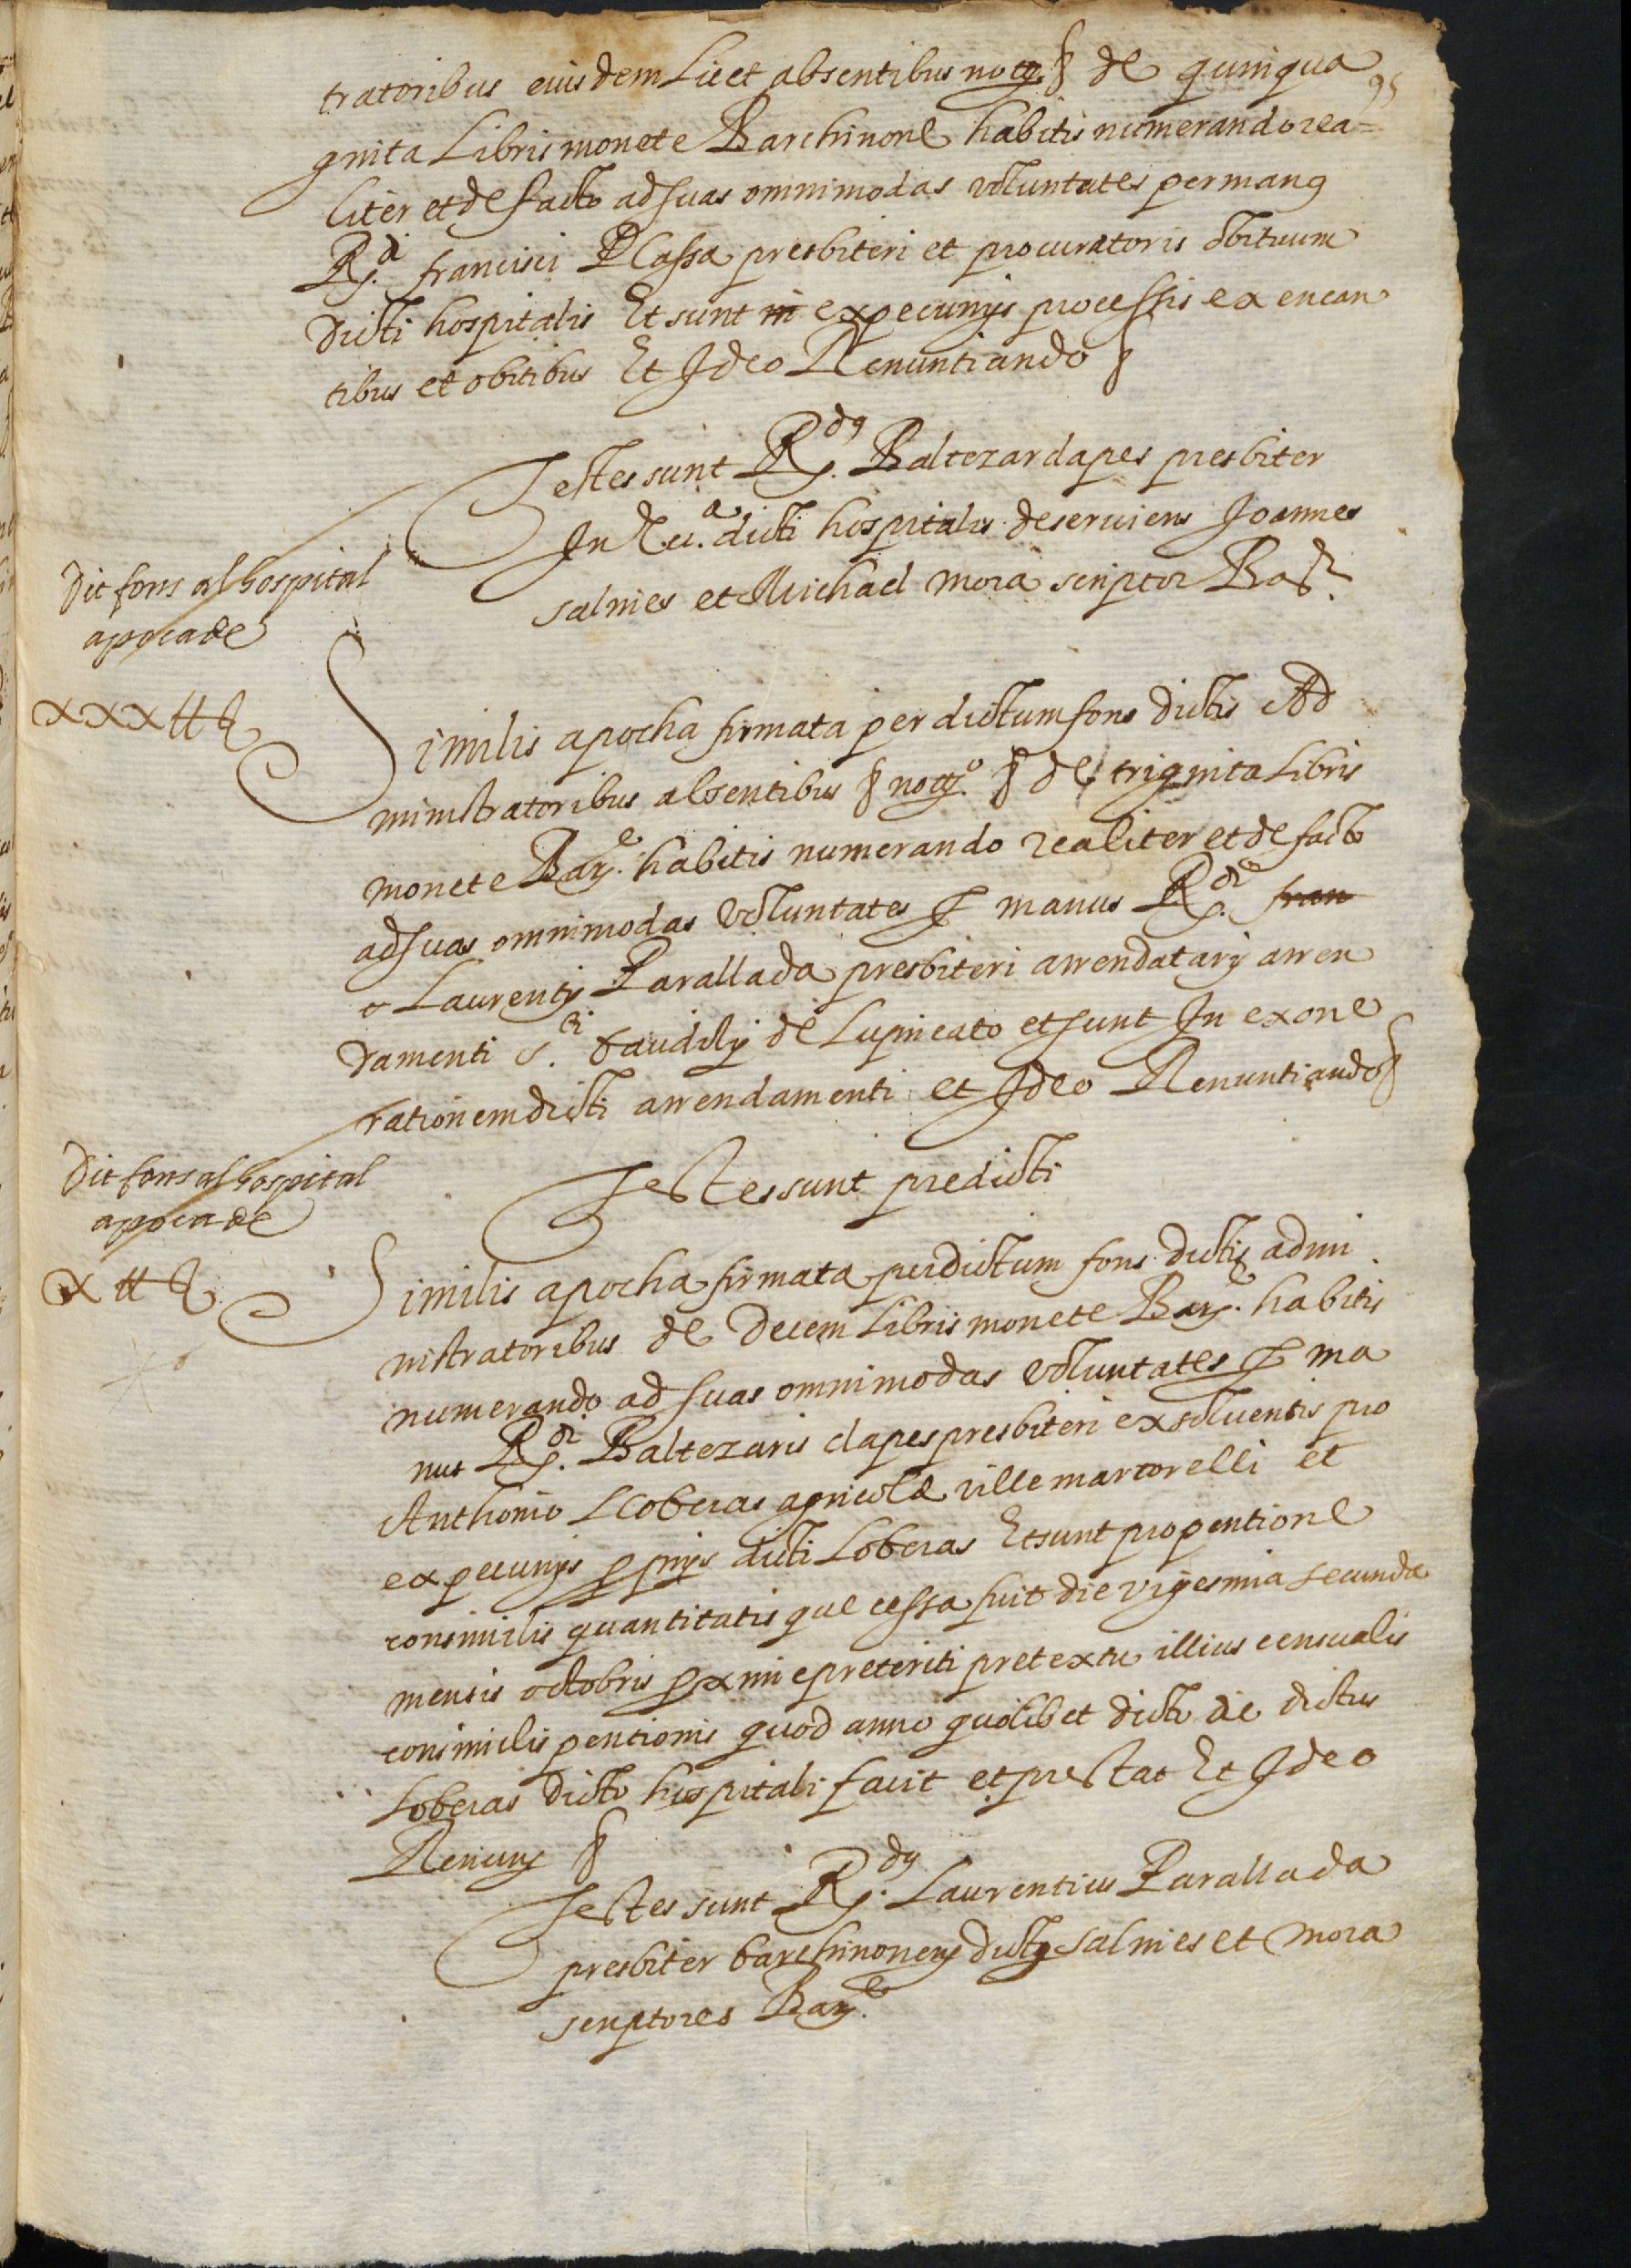 95
tratoribus eiusdem Licet absentibus notº § de quinqua
ginta Libris monete Barchinone habitis numerando rea=
liter et de facto ad suas omnimodas voluntates per manꝰ
R.di francisci Plassa presbiteri et procuratoris obituum
Dicti hospitalis Et sunt ex pecunijs processis ex encan
tibus et obitibus Et Ideo Renuntiando §
Testes sunt R.dꝰ Baltezar clapes presbiter
In dicti hospitalis deserviens Joannes
salnies et Michael mora scriptor
Dit fons al hospital
apoca de
xxx ℔ §
Similis apocha firmata per dictum fons dictis Ad
ministratoribus absentibus § not.º § de triginta Libris
monete Bar.e habitis numerando realiter et de facto
ad suas omnimodas voluntates ꝑ manus R.di fran
Laurentij Parallada presbiteri arrendatarij arren
damenti S.ti baudilij de Lupricato et sunt In exone
rationem dicti arrendamenti et Ideo Renuntiando §
Testes sunt predicti
Dit fons al hospital
apoca de
x ℔ §
Similis apocha firmata per dictum fons dictis admi
nistratoribus de Decem Libris monete Bar.e habitis
numerando ad suas omnimodas voluntates ꝑ ma
nus R.di Baltezaris clapes presbiteri exsolventis pro
Anthonio Lloberas agricola ville martorelli et
ex pecunijs ꝓprijs dicti Loberas Et sunt pro pentione
consimilis quantitatis que cessa fuit die vigesima secunda
mensis octobris ꝓxime preteriti pretextu illius censualis
consimilis pentionis quod anno quolibet dicto die dictus
Loberas dicto hospitali facit et prestat Et Ideo
Renunꝰ §
Testes sunt R.dꝰ Laurentius Parallada
presbiter barchinonensis dicti salnies et mora
scriptores Bar.e